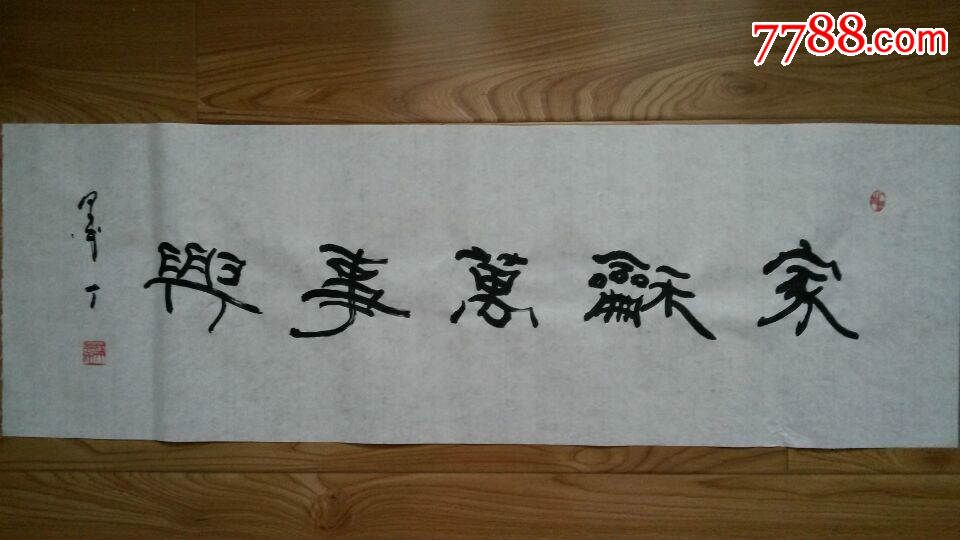 7788.com
家龢萬事興